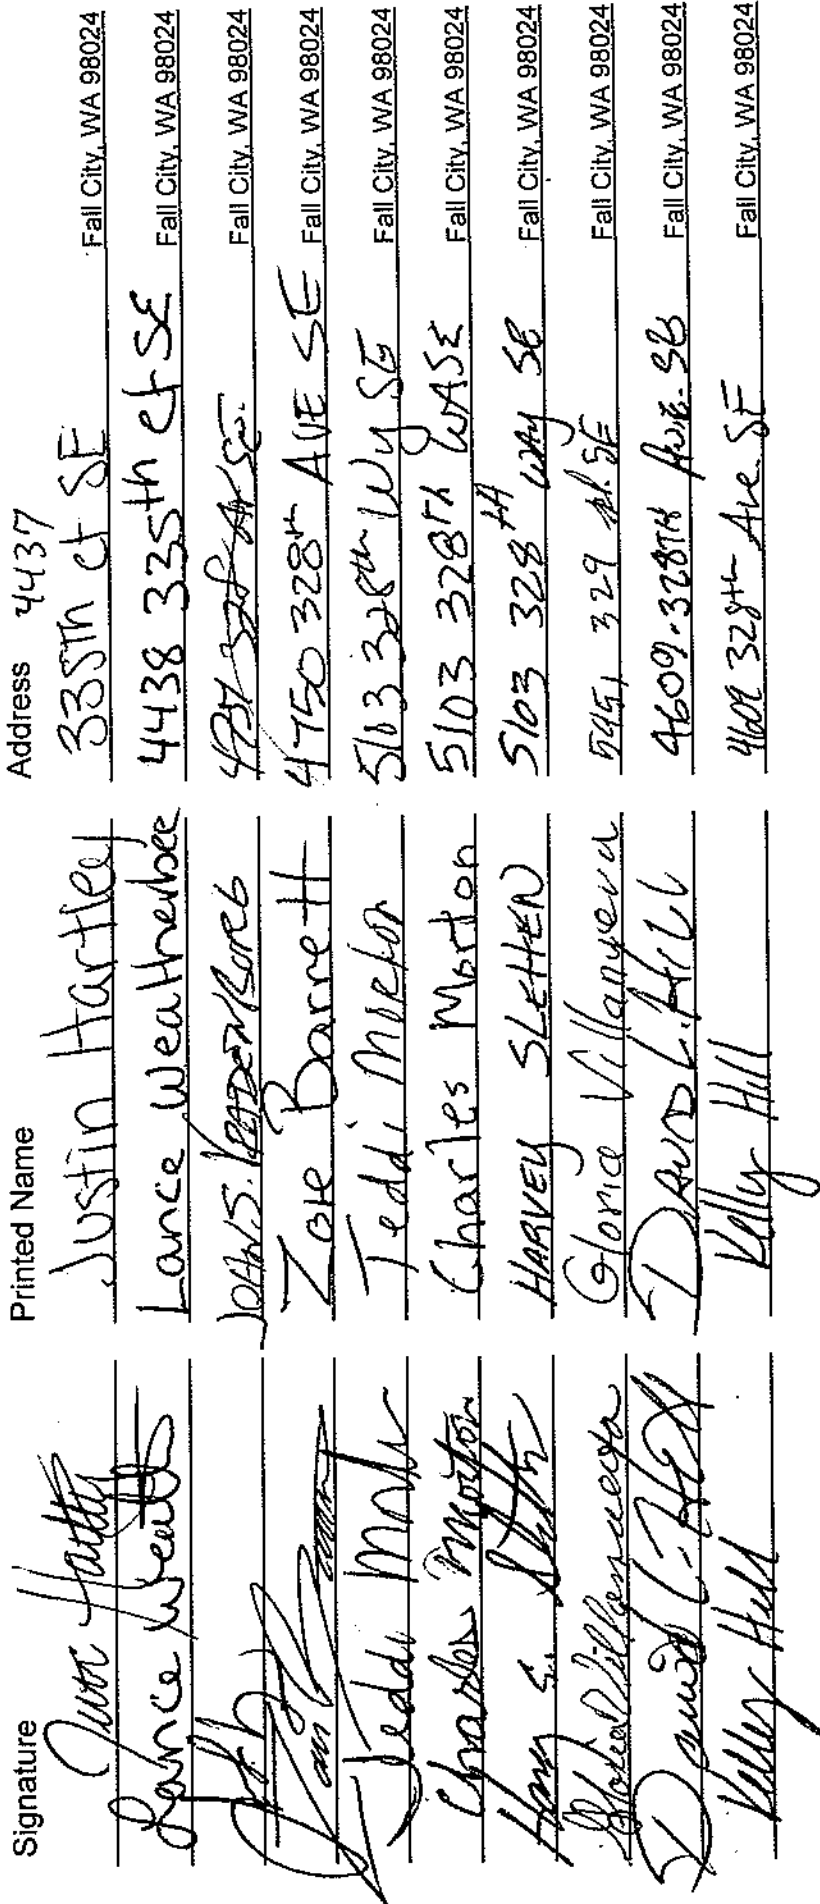 Signature Printed Name Address 4437
Justin Hartley 335Th ct SE Fall City, WA 98024
Lance Weatherbee 4438 335th ct SE Fall City, WA 98024
Fall City, WA 98024
Zoe Barrett 4750 328th AVE SE Fall City, WA 98024
Teddi Morton Teddi Morton 5103 328th Wy SE Fall City, WA 98024
Charles Morton Charles Morton 5103 328Th WASE Fall City, WA 98024
HARVEY SLETTEN 5103 328th WAY SE Fall City, WA 98024
Gloria Villanueva Gloria Villanyeva 329 SE Fall City, WA 98024
David L. Hill DAVID L. HILL 4609.328TH Ave. SE Fall City, WA 98024
Kelley Hill Kelly Hill 4609 328th Ave SE Fall City, WA 98024